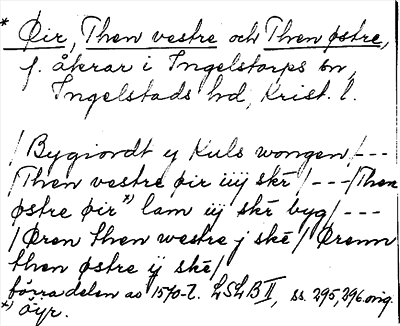 * Øir, Then vestre och Then østre,
f. åkrar i Ingelstorps sn,
Ingelstads hd, Krist. l.
/Bygiordt y Kuls wongen/---
/Then vestre øir iiij skē/---/Then
østre øir*) lam iij skē byg/---
/Øren then westre j skē/ Ørenn
then østre ij skē/
förra delen av 1570-t. LSLB II, ss. 295, 296 orig.
*) öyr.